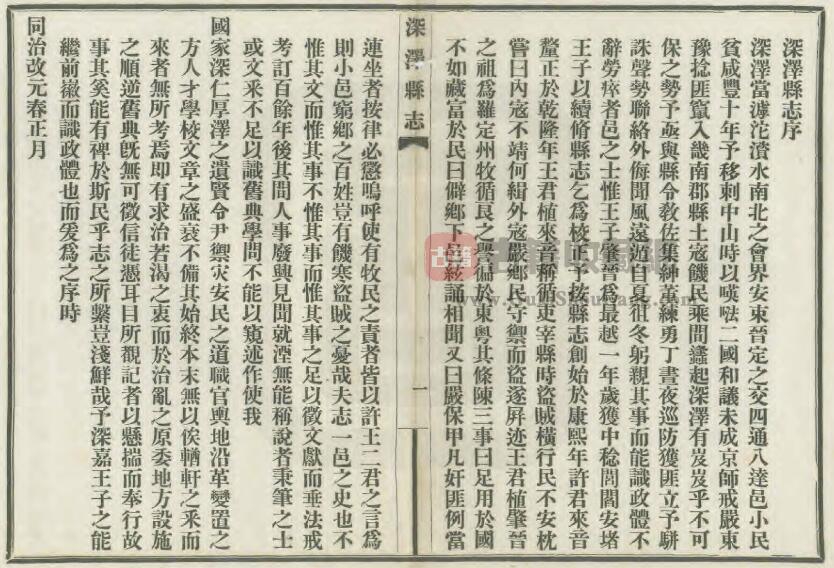 深澤縣志序
深澤當滹沱濱水南北之會界安束晉定之交四通八達邑小民
貧咸豐十年予移刺中山時以㗸㖿二國和議未成京師戒嚴東
豫捻匪竄入畿南郡縣土寇饑民乘間蠭起深澤有岌岌乎不可
保之勢予亟與縣令敎佐集紳董練勇丁晝夜巡防獲匪立予駢
誅聲勢聯絡外侮聞風遠遁自夏徂冬躬親其事而能識政體不
辭勞瘁者邑之士惟王子肇晉爲最越一年歲獲中稔閭閻安堵
王子以續脩縣志乞爲校正予按縣志創始於康熙年許君來音
釐正於乾隆年王君植來音稱循吏宰縣時盜賊橫行民不安枕
嘗曰內寇不靖何緝外寇嚴鄉民守禦而盜遂屏迹王君植肇晉
之祖爲羅定州牧循良之譽溢於東粵其條陳三事曰足用於國
不如藏富於民曰僻鄉下邑絃誦相聞又曰嚴保甲凡奸匪例當
深澤縣志
一
連坐者按律必懲嗚呼使有牧民之責者皆以許王二君之言爲
則小邑窮鄉之百姓豈有饑寒盜賊之憂哉夫志一邑之史也不
惟其文而惟其事不惟其事而惟其事之足以徵文獻而垂法戒
考訂百餘年後其間人事廢興見聞就湮無能稱說者秉筆之士
或文采不足以識舊典學問不能以窺述作使我
國家深仁厚澤之遺賢令尹禦灾安民之道職官輿地沿革變置之
方人才學校文章之盛衰不備其始終本末無以俟輶軒之釆而
來者無所考焉即有求治若渴之衷而於治亂之原委地方設施
之順逆舊典旣無可徵信徒憑耳目所觀記者以懸揣而奉行故
事其奚能有裨於斯民乎志之所繫豈淺鮮哉予深嘉王子之能
繼前嶽而識政體也而爰爲之序時
同治改元春正月
古籍